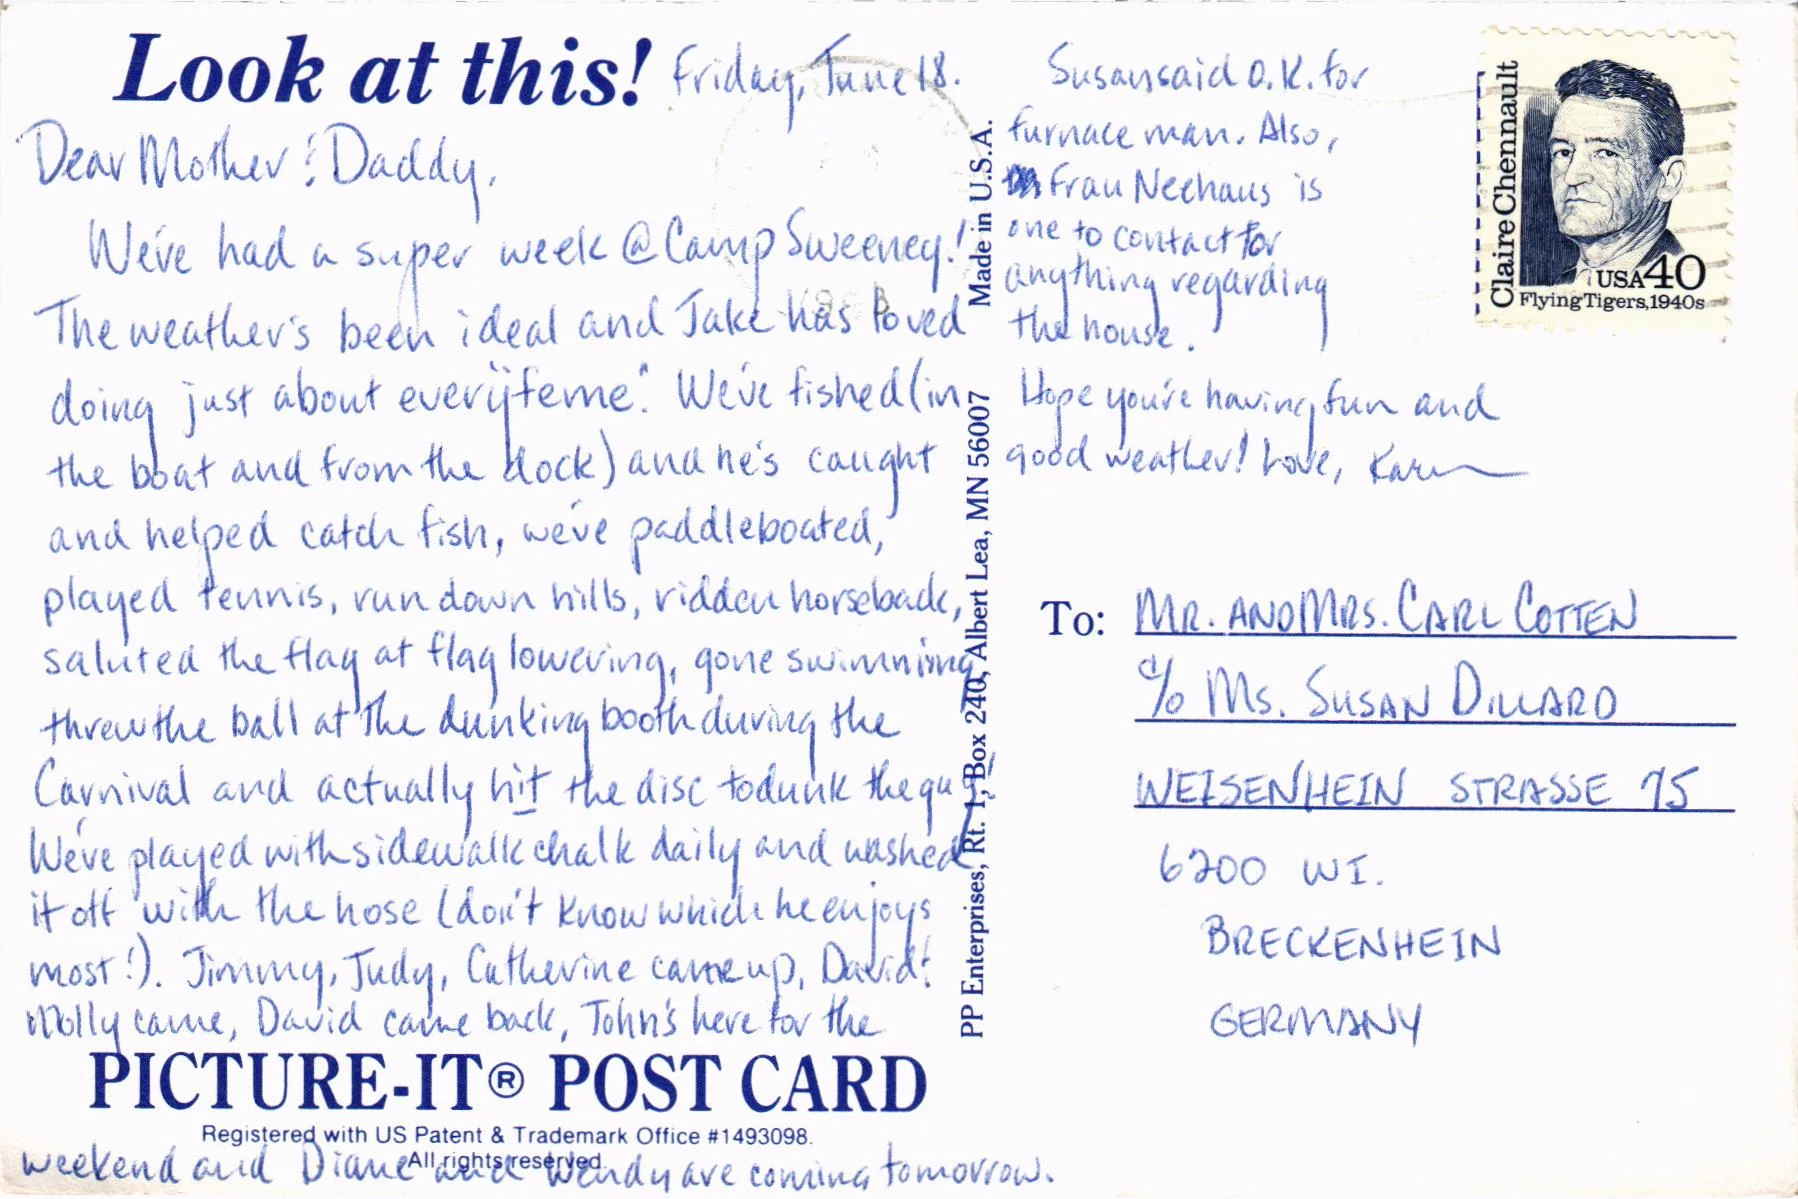 Look at this! Friday, June 18.
Dear Mother & Daddy,
We've had a super week @ Camp Sweeney!
The weather's been ideal and Jake has loved
doing just about everything. We've fished (in
the boat and from the dock) and he's caught
and helped catch fish, we've paddleboated,
played tennis, run down hills, ridden horseback,
saluted the flag at flag lowering, gone swimming
threw the ball at the dunking booth during the
Carnival and actually hit the disc to dunk the guy.
We've played with sidewalk chalk daily and washed
it off with the hose (don't know which he enjoys
most!). Jimmy, Judy, Catherine came up, David &
Molly came, David came back, John's here for the
PICTURE-IT® POST CARD
Registered with US Patent & Trademark Office #1493098.
All rights reserved.
weekend and Diane and Wendy are coming tomorrow.
PP Enterprises, Rt. 1, Box 240, Albert Lea, MN 56007 Made in U.S.A.
Susan said O.K. for
furnace man. Also,
Frau Neehaus is
one to contact for
anything regarding
the house.
Hope you're having fun and
good weather! Love, Karen
Claire Chennault
USA 40
Flying Tigers, 1940s
To: MR. AND MRS. CARL COTTEN
c/o MS. SUSAN DILLARD
WEISENHEIN STRASSE 15
6200 WI.
BRECKENHEIN
GERMANY